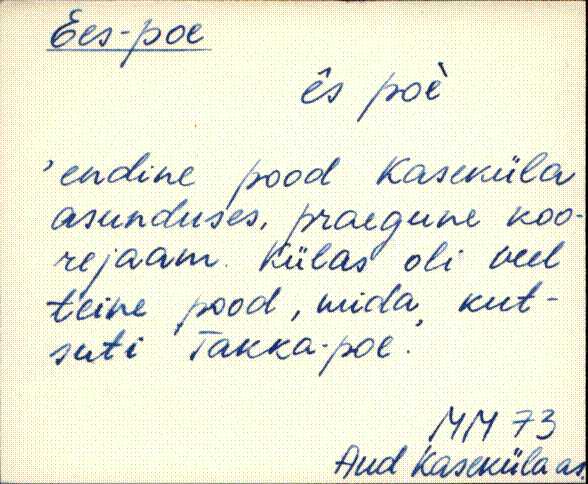 Ees-poe
ês poè
'endine pood Kaseküla
asunduses, praegune koo-
rejaam. Külas oli veel
teine pood, mida kut-
suti Takka-poe.
MM 73
Aud Kaseküla as.